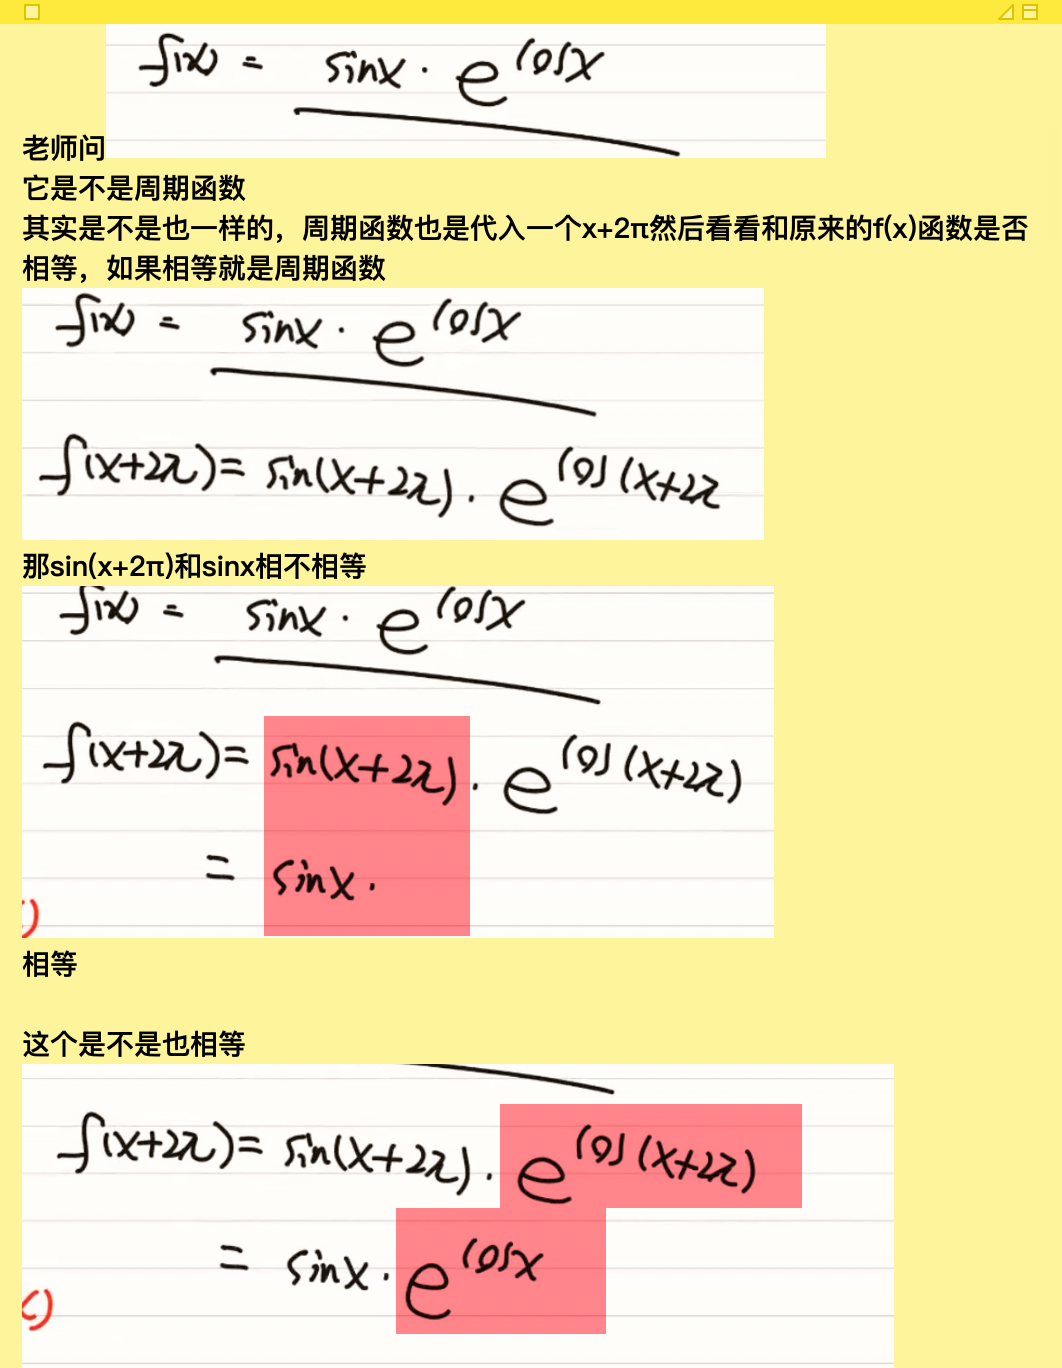 f(x) = sinx · e^cosx
老师问
它是不是周期函数
其实是不是也一样的，周期函数也是代入一个x+2π然后看看和原来的f(x)函数是否
相等，如果相等就是周期函数
f(x) = sinx · e^cosx
f(x+2π) = sin(x+2π) · e^cos(x+2π
那sin(x+2π)和sinx相不相等
f(x) = sinx · e^cosx
f(x+2π) = sin(x+2π) · e^cos(x+2π)
= sinx ·
相等
这个是不是也相等
f(x+2π) = sin(x+2π) · e^cos(x+2π)
= sinx · e^cosx